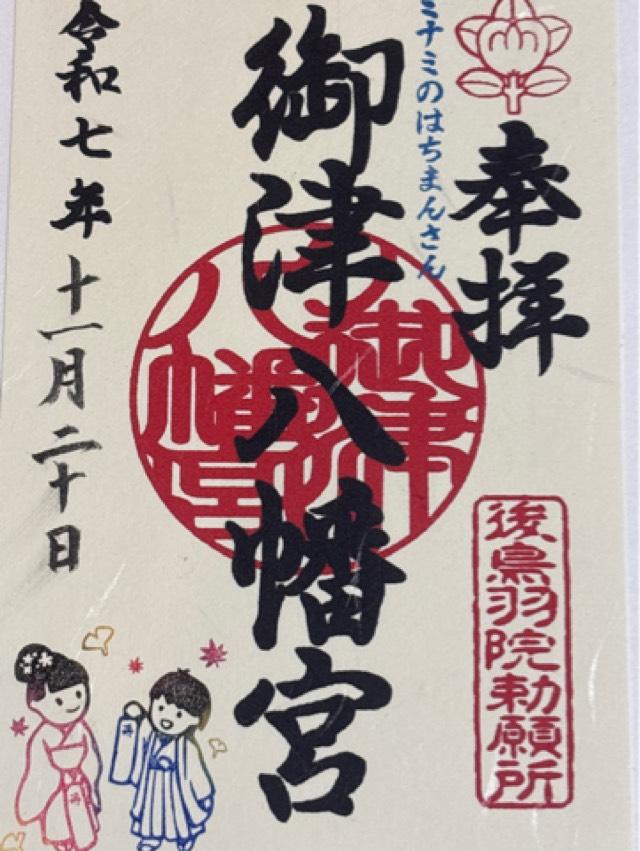 奉拝
ミナミのはちまんさん
御津八幡宮
令和七年十一月二十日
後鳥羽院勅願所